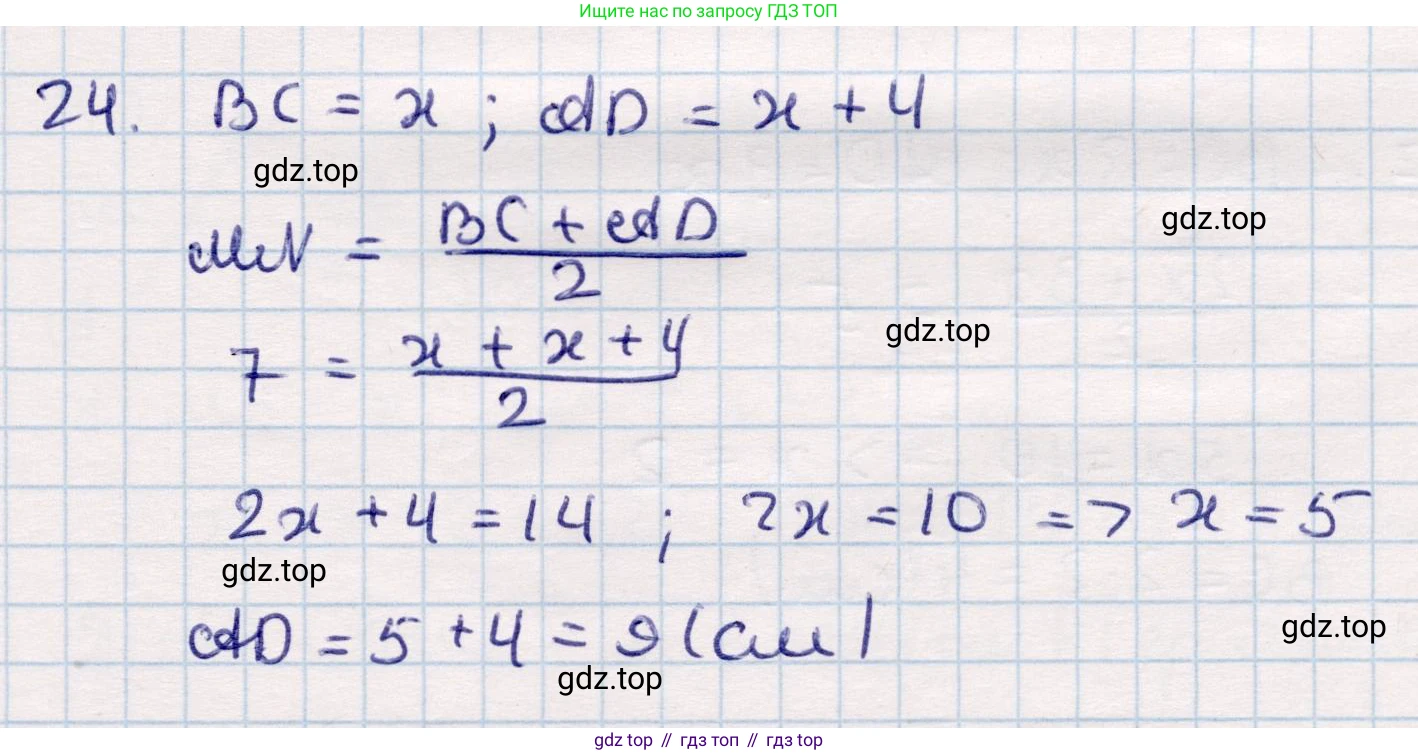 Ищите нас по запросу ГДЗ ТОП
24. BC = x ; AD = x + 4
gdz.top
gdz.top
MN = (BC + AD)/2
gdz.top
7 = (x + x + 4)/2
2x + 4 = 14 ; 2x = 10 => x = 5
gdz.top
AD = 5 + 4 = 9 (см)
gdz.top
gdz.top
gdz top // гдз топ // гдз top